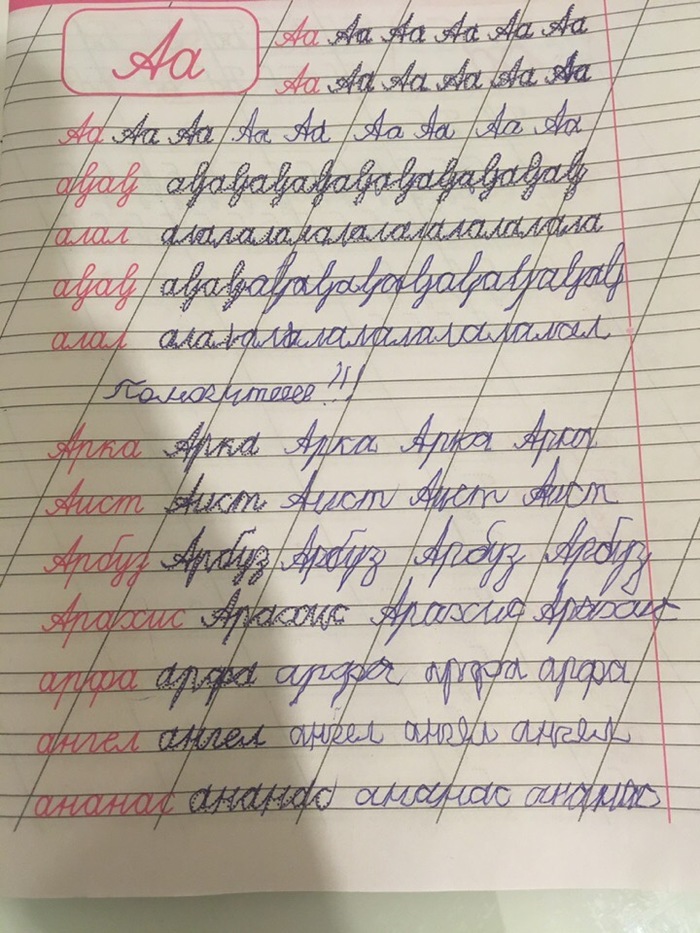 Аа
Аа Аа Аа Аа Аа Аа
Аа Аа Аа Аа Аа Аа
Аа Аа Аа Аа Аа Аа Аа Аа Аа
ауау ауауауауауауауауауау
алал алалалалалалалалалала
ауау ауауауауауауауауауау
алал алалалалалалалалалал
Помогитееее!!!
Арка Арка Арка Арка Арка
Аист Аист Аист Аист Аист
Арбуз Арбуз Арбуз Арбуз Арбуз
Арахис Арахис Арахис Арахис
арфа арфа арфа арфа арфа
ангел ангел ангел ангел ангел
ананас ананас ананас ананас